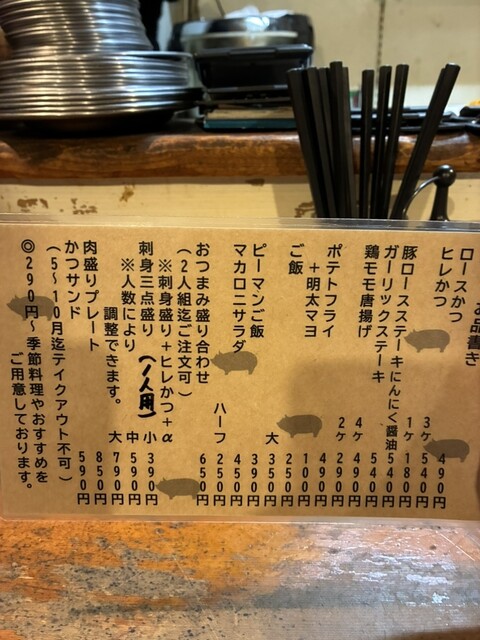 お品書き
ロースかつ 490円
ヒレかつ 3ケ 540円
1ケ 180円
豚ロースステーキにんにく醤油 440円
ガーリックステーキ 540円
鶏モモ唐揚げ 4ケ 490円
2ケ 290円
ポテトフライ 490円
+明太マヨ 100円
ご飯 250円
大 350円
ピーマンご飯 390円
マカロニサラダ 450円
ハーフ 250円
おつまみ盛り合わせ 650円
(2人組迄ご注文可)
※刺身盛り+ヒレかつ+α
刺身三点盛り (1人用) 小 390円
※人数により 中 590円
調整できます。 大 790円
肉盛りプレート 850円
かつサンド 590円
(5~10月迄テイクアウト不可)
◎290円~季節料理やおすすめを
ご用意しております。